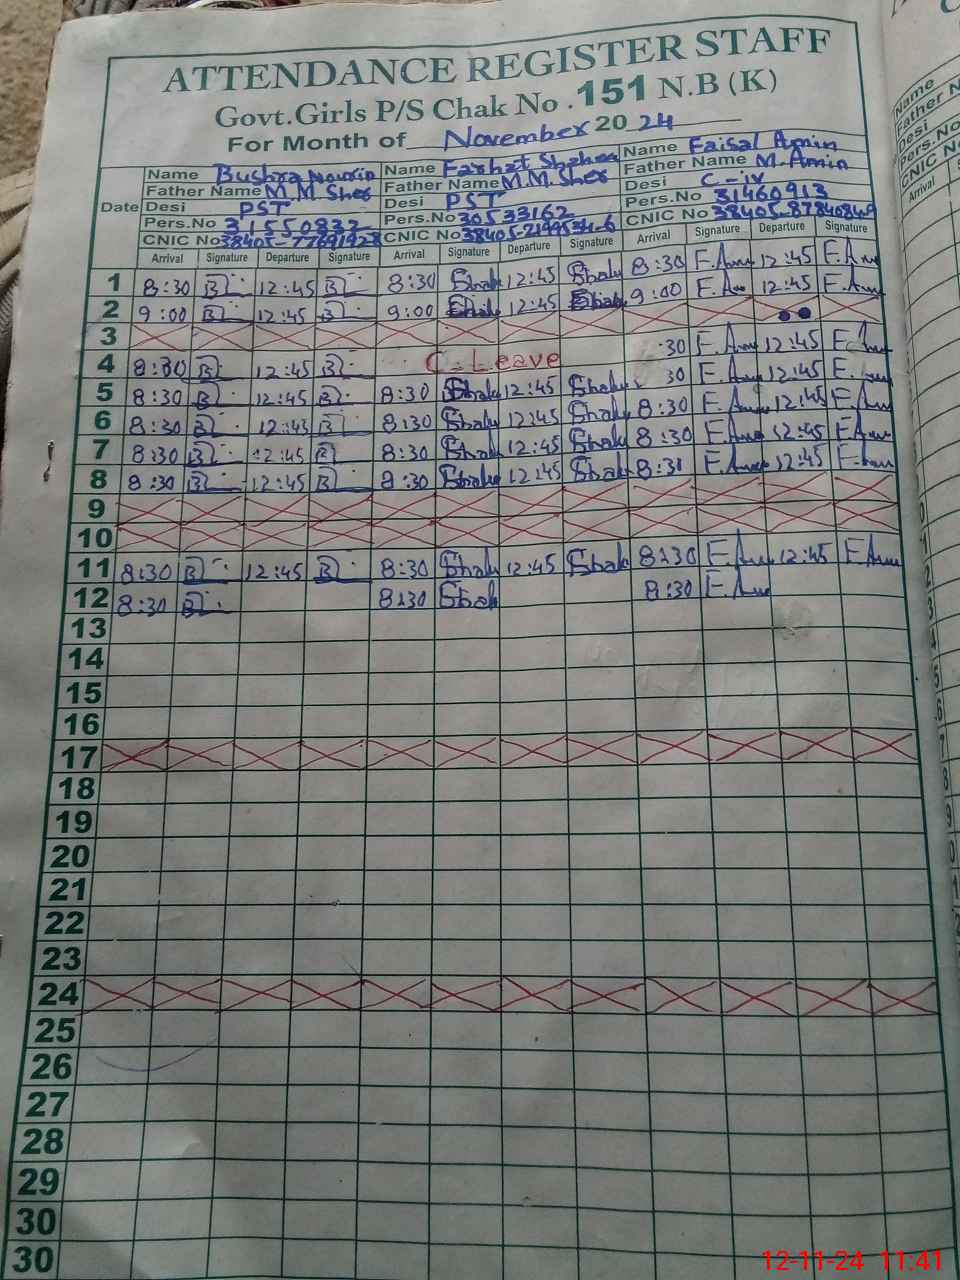 ATTENDANCE REGISTER STAFF
Govt.Girls P/S Chak No .151 N.B (K)
For Month of November 2024
Name Bushra Nousin Name Farhat Shaheen Name Faisal Amin
Father Name M.M. Sher Father Name M.M. Sher Father Name M. Amin
Date Desi PST Desi PST Desi C-IV
Pers.No 31550832 Pers.No 30533162 Pers.No 31460913
CNIC No 38405- CNIC No 38405- 38405-
Arrival Signature Departure Signature Arrival Signature Departure Signature Arrival Signature Departure Signature
1 8:30 12:45 8:30 Shah 12:45 Shah 8:30 F.Am 12:45 F.Am
2 9:00 12:45 9:00 Shah 12:45 Shah 9:00 F.Am F.Am
3
4 8:30 12:45 C-Leave :30 F.Am 12:45 F.Am
5 8:30 12:45 8:30 Shah 12:45 Shah 30 F.Am 12:45 F.Am
6 8:30 12:45 8:30 Shah 12:45 Shah 8:30 F.Am 12:45 F.Am
7 8:30 12:45 8:30 Shah 12:45 Shah 8:30 F.Am 12:45 F.Am
8 8:30 12:45 8:30 Shah 12:45 Shah 8:30 F.Am 12:45 F.Am
9
10
11 8:30 12:45 8:30 Shah 12:45 Shah 8:30 F.Am 12:45 F.Am
12 8:30 8:30 Shah 8:30 F.Am
13
14
15
16
17
18
19
20
21
22
23
24
25
26
27
28
29
30
30
12-11-24 11:41